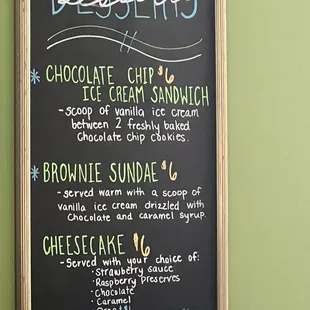 DESSERTS
* CHOCOLATE CHIP $6
ICE CREAM SANDWICH
- Scoop of vanilla ice cream
between 2 freshly baked
Chocolate chip cookies.
* BROWNIE SUNDAE $6
- served warm with a scoop of
vanilla ice cream drizzled with
Chocolate and caramel syrup.
CHEESECAKE $6
- Served with your choice of:
· Strawberry sauce
· Raspberry preserves
· Chocolate
· Caramel